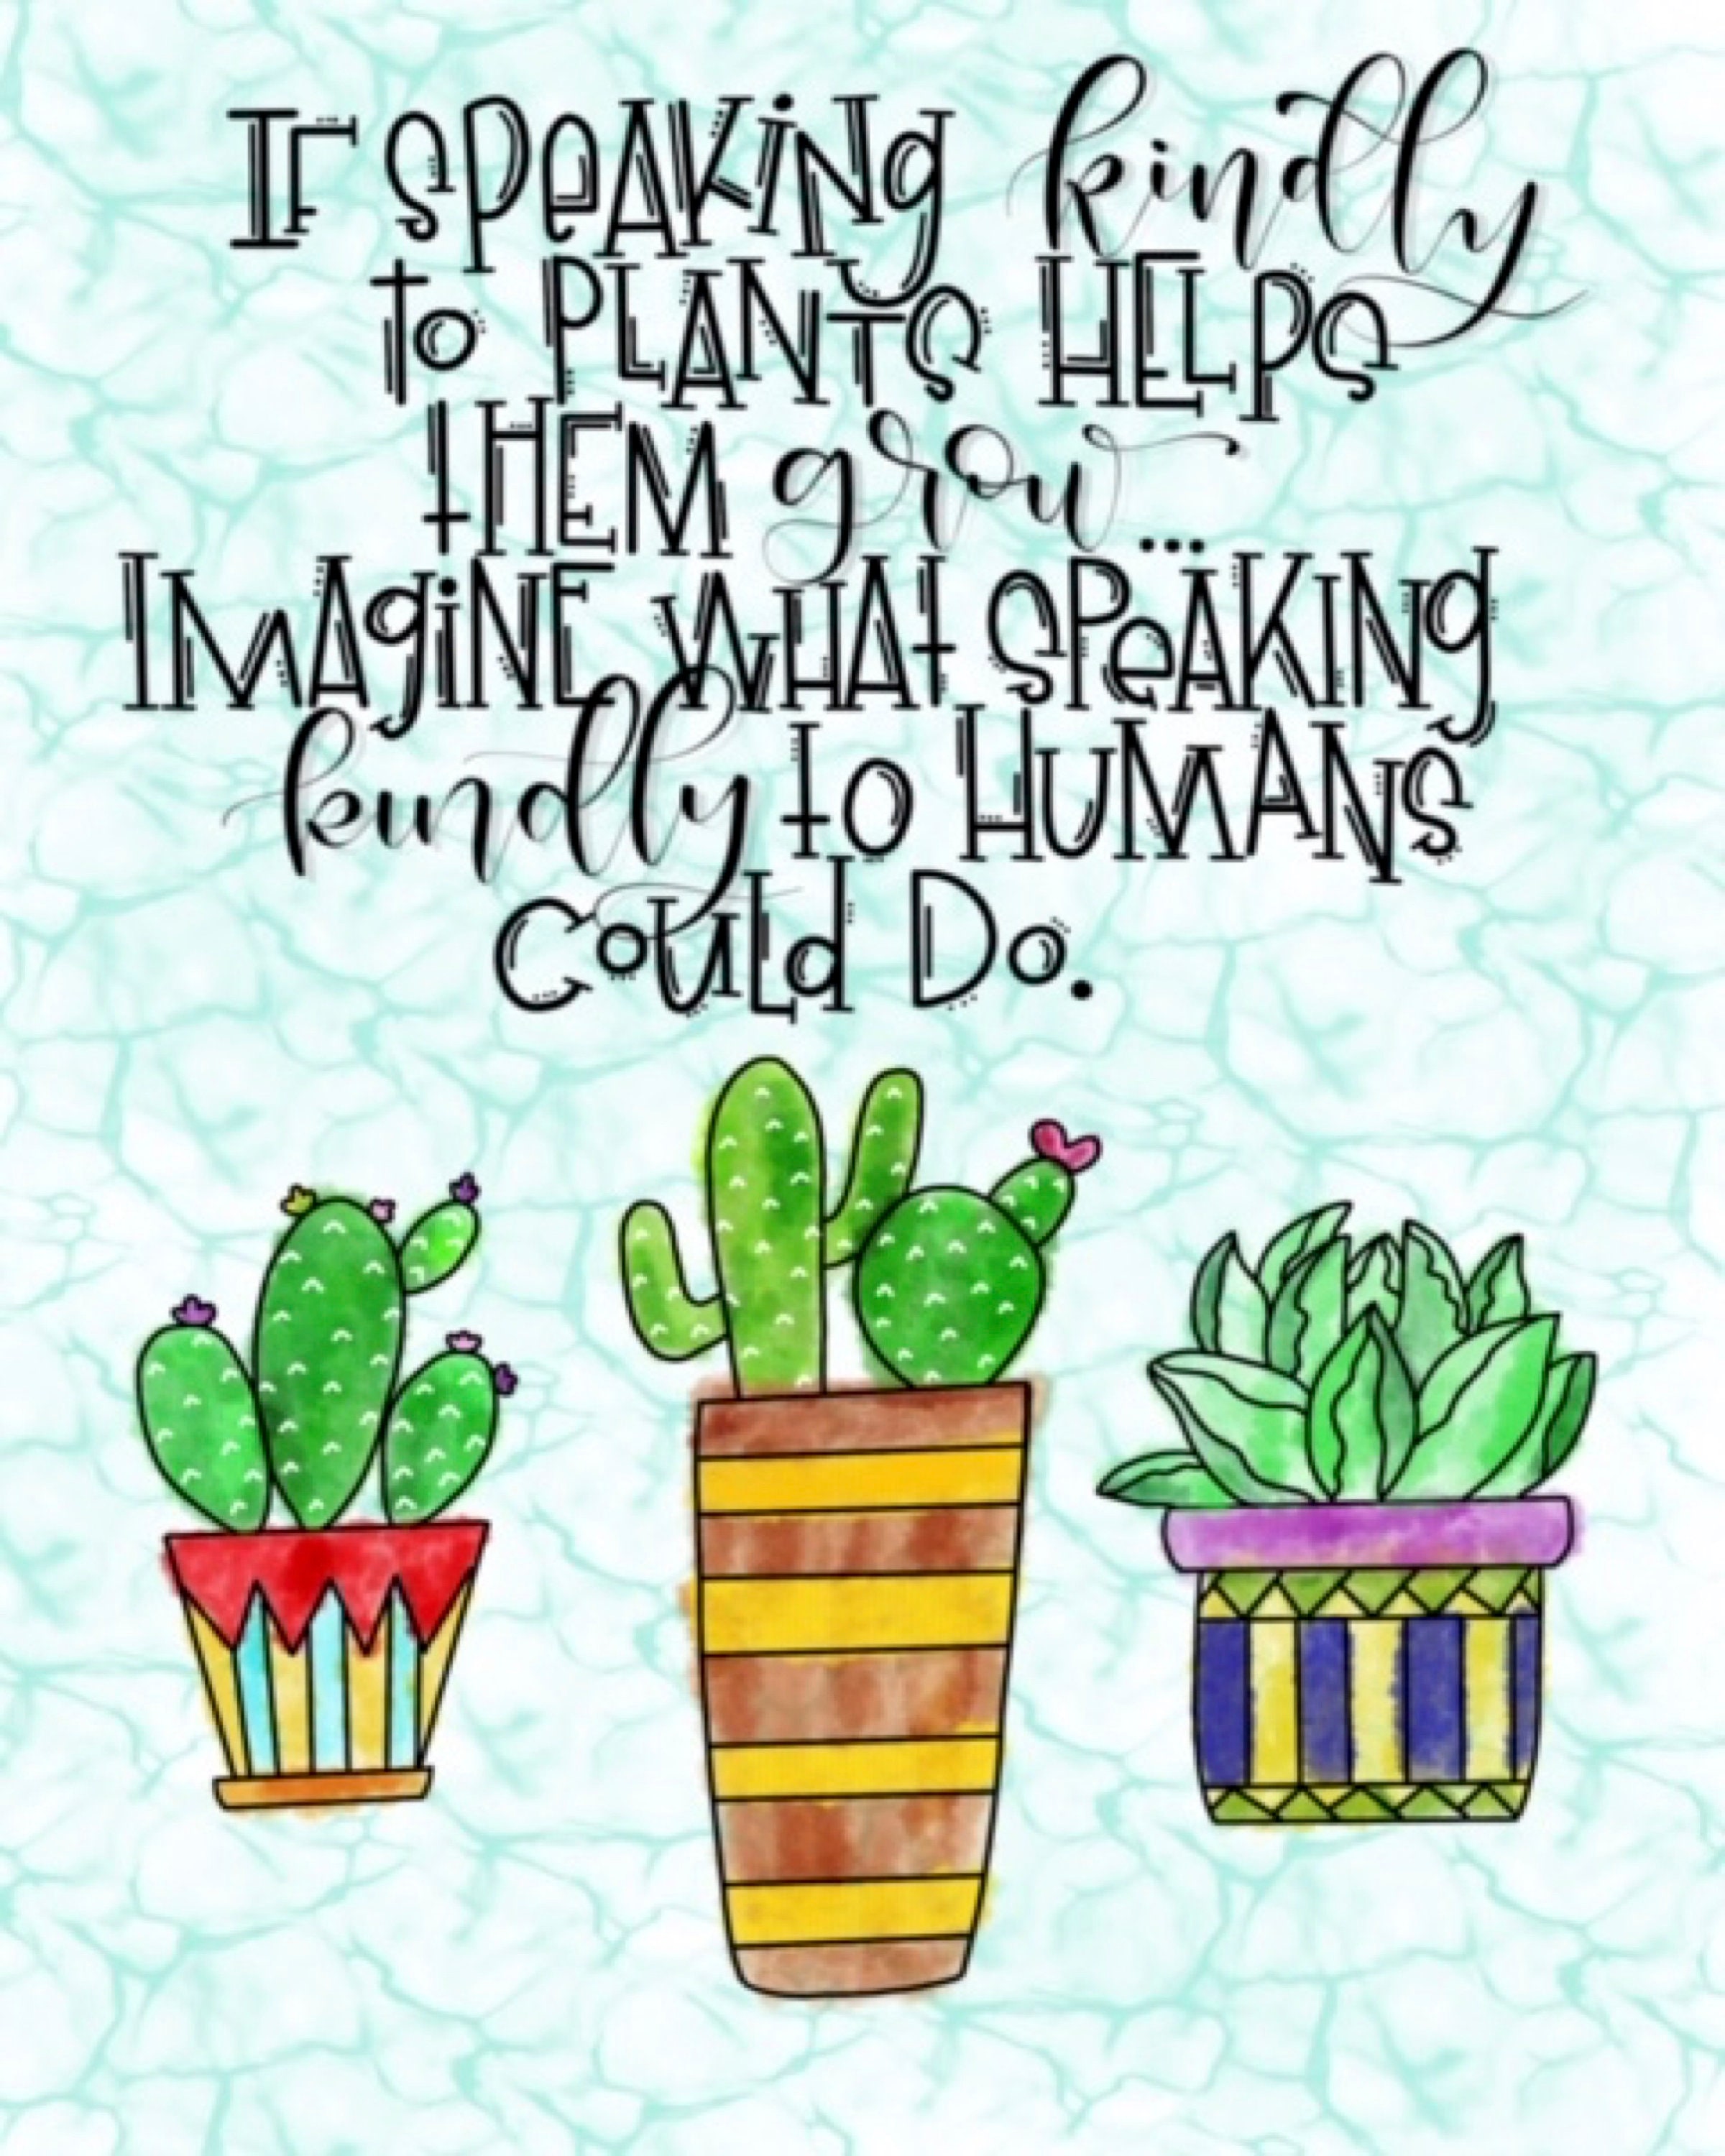 If speaking kindly
to plants helps
them grow...
Imagine what speaking
kindly to humans
could do.